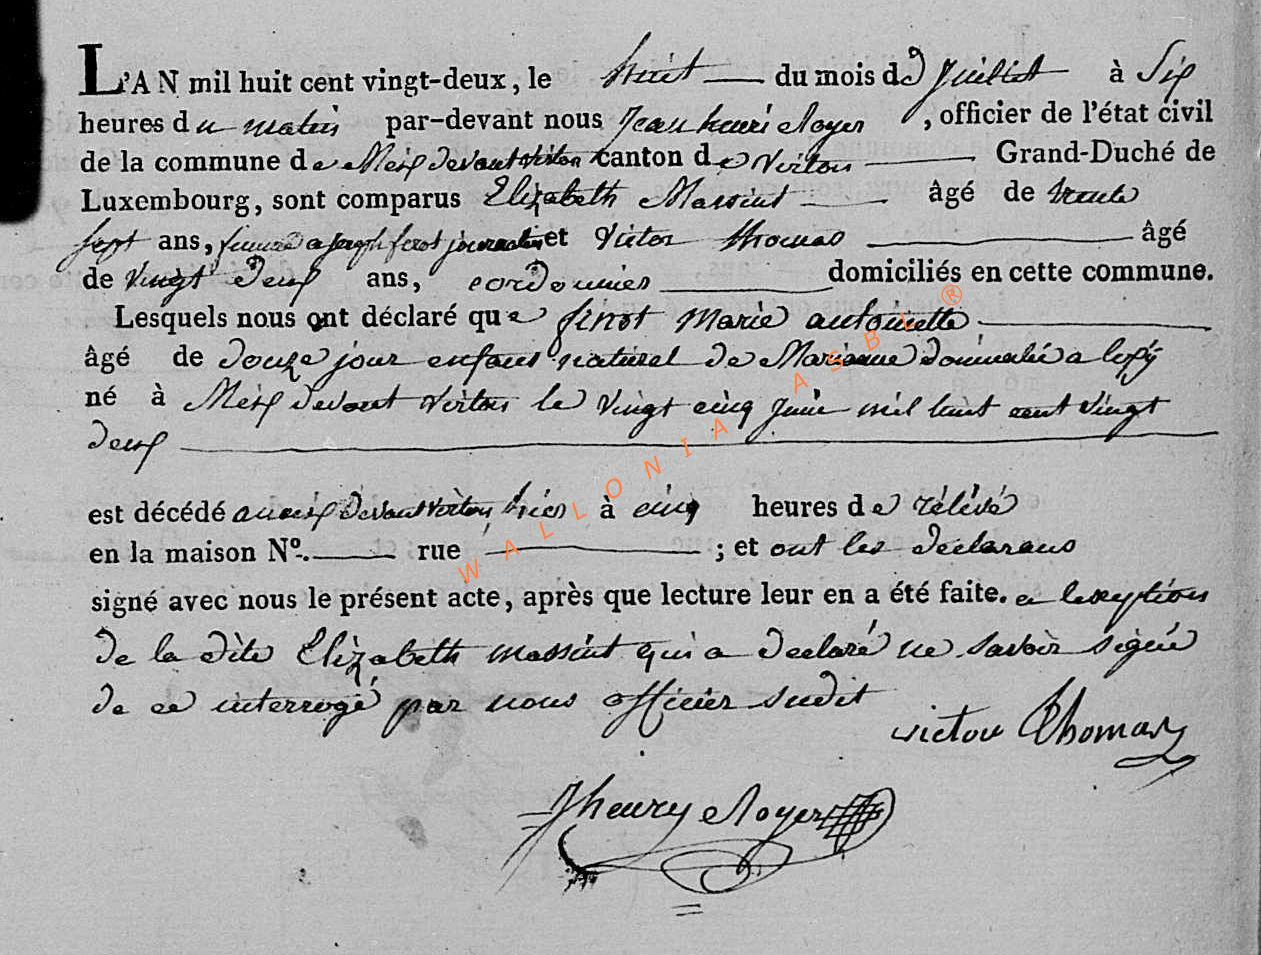 L'AN mil huit cent vingt-deux, le huit du mois de juillet à Six
heures du matin par-devant nous Jean henri Noyer, officier de l'état civil
de la commune de Meix devant virton canton de virton Grand-Duché de
Luxembourg, sont comparus Elizabeth Massint âgé de trente
sept ans, femme a joseph ferot journalier et Victor thomas âgé
de vingt deux ans, cordonnier domiciliés en cette commune.
Lesquels nous ont déclaré que finot Marie antoinette
âgé de douze jour enfant naturel de Marianne domiciliée a
né à Meix devant virton le vingt cinq juin mil huit cent vingt
deux
est décédé a meix devant virton hier à cinq heures de rélévé
en la maison Nº. rue ; et ont les declarans
signé avec nous le présent acte, après que lecture leur en a été faite. a lexeption
de la dite Elizabeth massint qui a declaré ne savoir signée
de ce interrogé par nous officier sudit
victor Thomas
Jhenry Noyer
WALLONIA ASBL ®